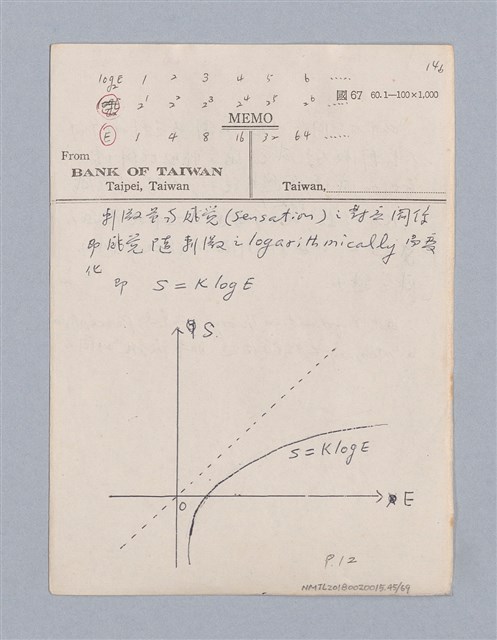 146
log₂E 1 2 3 4 5 6 .....
2¹ 2² 2³ 2⁴ 2⁵ 2⁶ .....
國 67 60.1—100×1,000
MEMO
E 1 4 8 16 32 64 .....
From
BANK OF TAIWAN
Taipei, Taiwan
Taiwan,
刺激量与感覚(sensation)之對应関係
即感覚随刺激之logarithmically而変
化
即 S = K log E
S.
S = K log E
O
E
P.12
NMTL20180020015.45/59